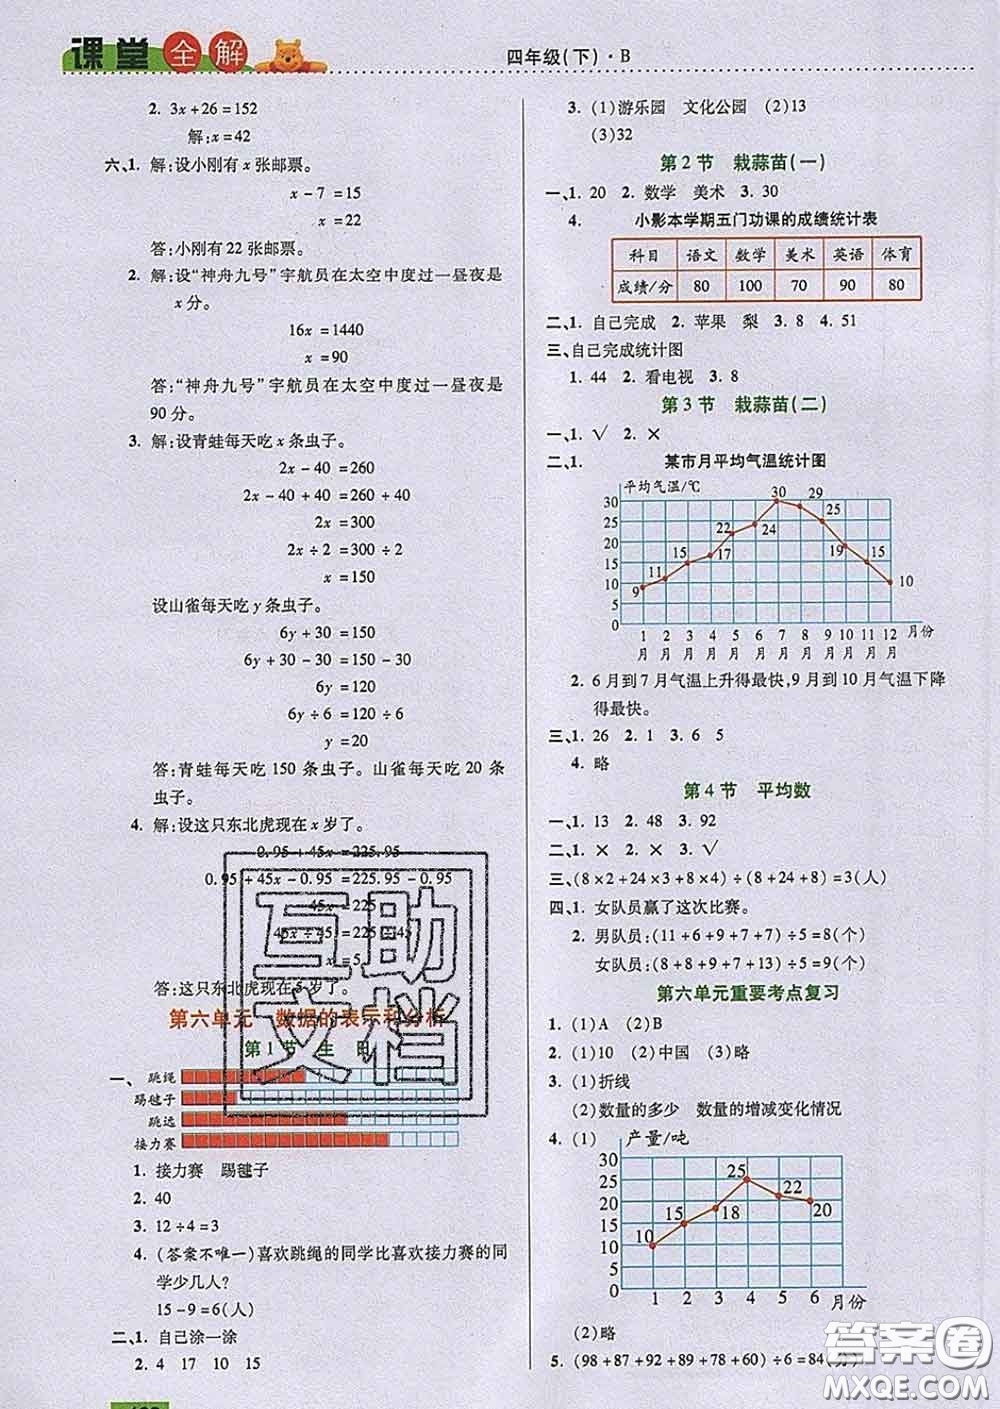 课堂全解
四年级(下)·B
2. 3x+26=152
解:x=42
六、1. 解:设小刚有x张邮票。
x-7=15
x=22
答:小刚有22张邮票。
2. 解:设“神舟九号”宇航员在太空中度过一昼夜是
x分。
16x=1440
x=90
答:“神舟九号”宇航员在太空中度过一昼夜是
90分。
3. 解:设青蛙每天吃x条虫子。
2x-40=260
2x-40+40=260+40
2x=300
2x÷2=300÷2
x=150
设山雀每天吃y条虫子。
6y+30=150
6y+30-30=150-30
6y=120
6y÷6=120÷6
y=20
答:青蛙每天吃150条虫子。山雀每天吃20条
虫子。
4. 解:设这只东北虎现在x岁了。
0.95+45x=225.95
0.95+45x-0.95=225.95-0.95
45x=225
45x÷45=225÷45
x=5
答:这只东北虎现在5岁了。
第六单元 数据的表示和分析
第1节 生 日
一、 跳绳
踢毽子
跳远
接力赛
1. 接力赛 踢毽子
2. 40
3. 12÷4=3
4. (答案不唯一)喜欢跳绳的同学比喜欢接力赛的同
学少几人?
15-9=6(人)
二、1. 自己涂一涂
2. 4 17 10 15
3. (1)游乐园 文化公园 (2)13
(3)32
第2节 栽蒜苗(一)
一、1. 20 2. 数学 美术 3. 30
4. 小影本学期五门功课的成绩统计表
科目 语文 数学 美术 英语 体育
成绩/分 80 100 70 90 80
二、1. 自己完成 2. 苹果 梨 3. 8 4. 51
三、自己完成统计图
1. 44 2. 看电视 3. 8
第3节 栽蒜苗(二)
一、1. √ 2. ×
二、1. 某市月平均气温统计图
平均气温/℃
30 25 20 15 10 5 0
9 11 15 17 22 24 30 29 25 19 15 10
1月 2月 3月 4月 5月 6月 7月 8月 9月 10月 11月 12月 月份
2. 6月到7月气温上升得最快,9月到10月气温下降
得最快。
三、1. 26 2. 1 3. 6 5
4. 略
第4节 平均数
一、1. 13 2. 48 3. 92
二、1. × 2. × 3. √
三、(8×2+24×3+8×4)÷(8+24+8)=3(人)
四、1. 女队员赢了这次比赛。
2. 男队员:(11+6+9+7+7)÷5=8(个)
女队员:(8+8+9+7+13)÷5=9(个)
第六单元重要考点复习
1. (1)A (2)B
2. (1)10 (2)中国 (3)略
3. (1)折线
(2)数量的多少 数量的增减变化情况
4. (1) 产量/吨
30 25 20 15 10 5 0
10 15 18 25 22 20
1 2 3 4 5 6 月份
(2)略
5. (98+87+92+89+78+60)÷6=84(分)
互助
文档
答案圈
MXQE.COM